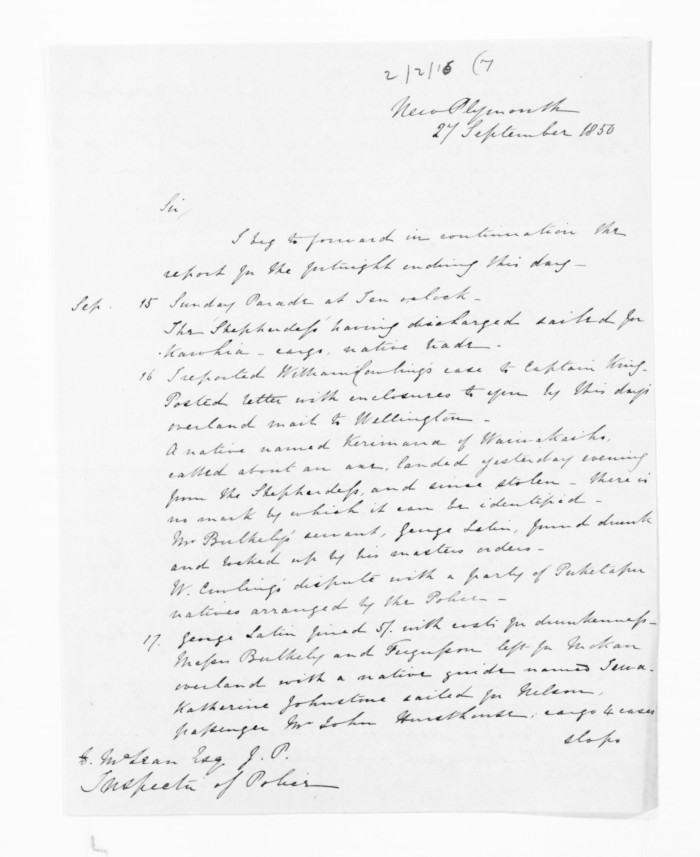 2/2/16 (7
New Plymouth
27 September 1850
Sir,
I beg to forward in continuation the
report for the fortnight ending this day—
Sep. 15 Sunday Parade at Ten oclock—
The "Shepherdess" having discharged sailed for
Kawhia - cargo, native trade.
16 I reported William Cowling's case to Captain King—
Posted letter with enclosures to you by this day's
overland mail to Wellington—
A native named Kerimana of Waiwakaiho,
called about an oar, landed yesterday evening
from the Shepherdess, and since stolen — there is
no mark by which it can be identified—
Mr Bulkely's servant, George Latin, found drunk
and locked up by his masters orders—
W. Cowling's dispute with a party of Puketapu
natives arranged by the Police—
17. George Latin fined 5/. with costs for drunkenness—
Messrs Bulkely and Fergusson left for Mokau
overland with a native guide named
Katherine Johnstone sailed for Nelson,
passenger Mr John Hursthouse; cargo 4 cases
slops
D. McLean Esq J. P.
Inspector of Police